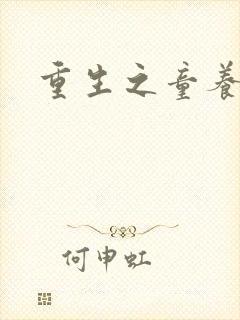 重生之童养
何申虹